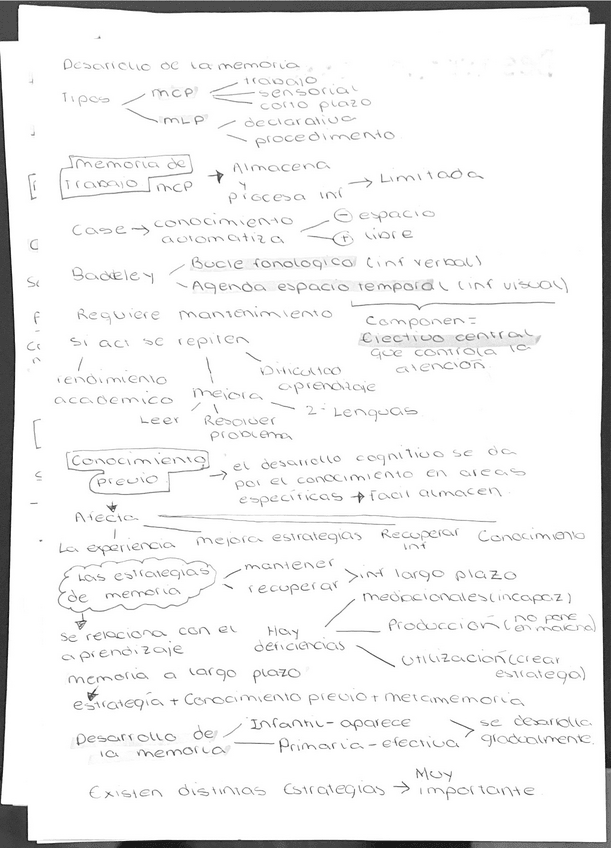 Desarrollo de la memoria
Tipos
MCP
trabajo
sensorial
corto plazo
MLP
declarativa
procedimento
Memoria de
Trabajo
MCP
Almacena
y
procesa inf
→ Limitada
Case → conocimiento
automatiza
⊖ espacio
⊕ libre
Baddeley
Bucle fonologico (inf verbal)
Agenda espacio temporal (inf visual)
Requiere mantenimiento
Componen =
Ejectivo central,
que controla la
atención.
si act se repiten
rendimiento
academico
mejora
Dificultad
aprendizaje
Leer
Resolver
problema
2ª Lenguas
Conocimiento
previo
→ el desarrollo cognitivo se da
por el conocimiento en areas
especificas → facil almacen.
Afecta
La experiencia
mejora estrategias
Recuperar
inf
Conocimiento
Las estrategias
de memoria
mantener
recuperar
inf largo plazo
se relaciona con el
aprendizaje
Hay
deficiencias
mediacionales (incapaz)
Producción (no pone
en marcha)
Utilización (crear
estratega)
memoria a largo plazo
estrategia + Conocimiento previo + metamemoria
Desarrollo de
la memoria
Infantil - aparece
Primaria - efectiva
se desarrolla
gradualmente.
Existen distintas Estrategias → Muy
importante.